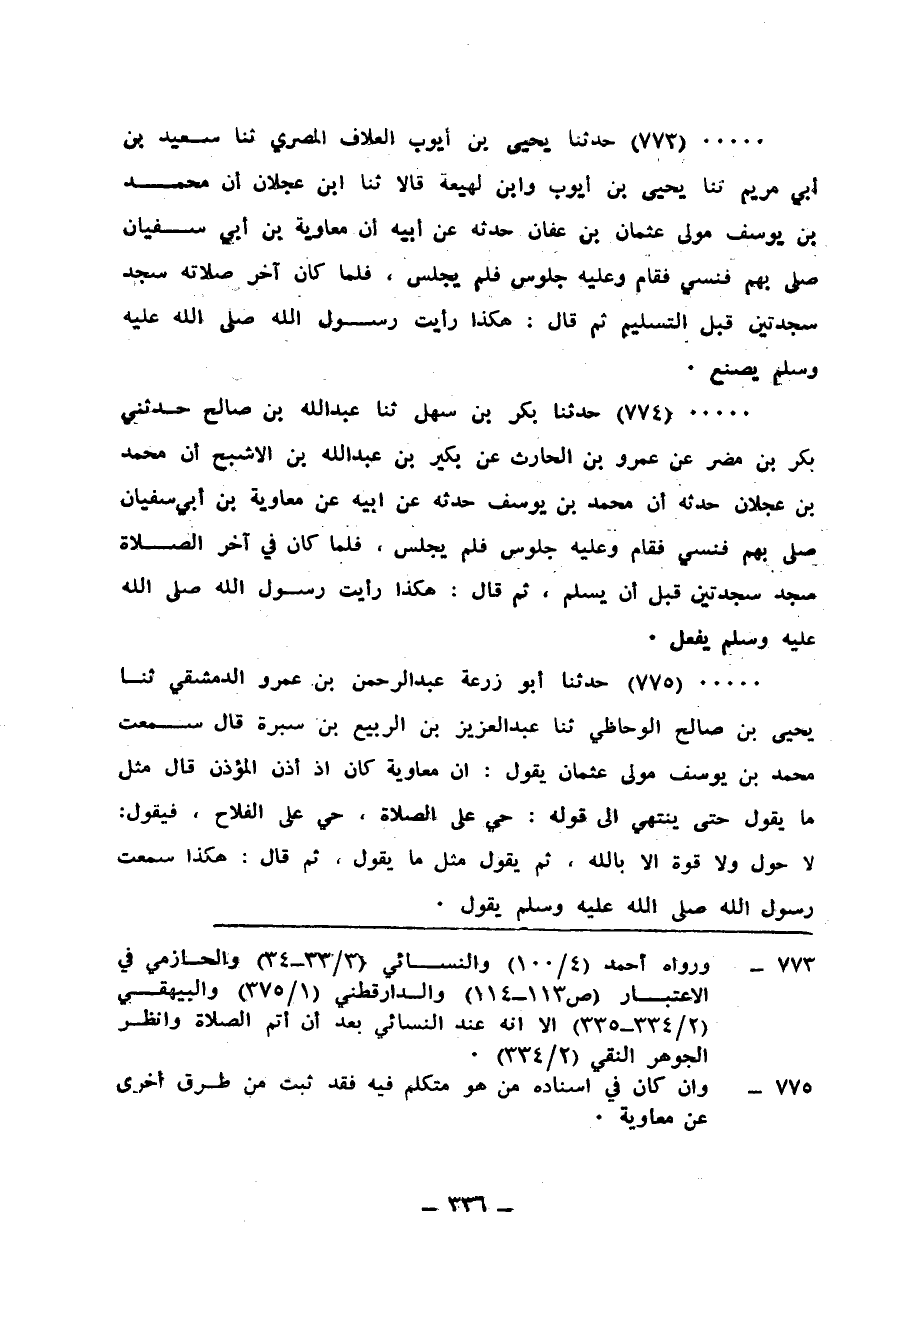 ٠٠٠٠٠ (٧٧٣) حدثنا يحيى بن أيوب العلاف المصري ثنا سـعيد بن
أبي مريم ثنا يحيى بن أيوب وابن لهيعة قالا ثنا ابن عجلان أن محمـــد
بن يوسف مولى عثمان بن عفان حدثه عن أبيه أن معاوية بن أبي ســفيان
صلى بهم فنسي فقام وعليه جلوس فلم يجلس ، فلما كان آخر صلاته سجد
سجدتين قبل التسليم ثم قال : هكذا رأيت رســول الله صلى الله عليه
وسلم يصنع ٠
٠٠٠٠٠ (٧٧٤) حدثنا بكر بن سهل ثنا عبدالله بن صالح حـدثني
بكر بن مضر عن عمرو بن الحارث عن بكير بن عبدالله بن الاشبح أن محمد
بن عجلان حدثه أن محمد بن يوسف حدثه عن ابيه عن معاوية بن أبي سفيان
صلى بهم فنسي فقام وعليه جلوس فلم يجلس ، فلما كان في آخر الصــلاة
سجد سجدتين قبل أن يسلم ، ثم قال : هكذا رأيت رسـول الله صلى الله
عليه وسلم يفعل ٠
٠٠٠٠٠ (٧٧٥) حدثنا أبو زرعة عبدالرحمن بن عمرو الدمشقي ثنـا
يحيى بن صالح الوحاظي ثنا عبدالعزيز بن الربيع بن سبرة قال ســمعت
محمد بن يوسف مولى عثمان يقول : ان معاوية كان اذ أذن المؤذن قال مثل
ما يقول حتى ينتهي الى قوله : حي على الصلاة ، حي على الفلاح ، فيقول:
لا حول ولا قوة الا بالله ، ثم يقول مثل ما يقول ، ثم قال : هكذا سمعت
رسول الله صلى الله عليه وسلم يقول ٠
٧٧٣ ــ ورواه أحمد (١٠٠/٤) والنســائي (٣٣/٣ــ٣٤) والحـازمي في
الاعتبــار (ص١١٣ــ١١٤) والـدارقطني (٣٧٥/١) والبيهقــي
(٣٣٤/٢ــ٣٣٥) الا انه عند النسائي بعد أن أتم الصلاة وانظـر
الجوهر النقي (٣٣٤/٢) ٠
٧٧٥ ــ وان كان في اسناده من هو متكلم فيه فقد ثبت من طـرق أخرى
عن معاوية ٠
ــ ٣٣٦ ــ